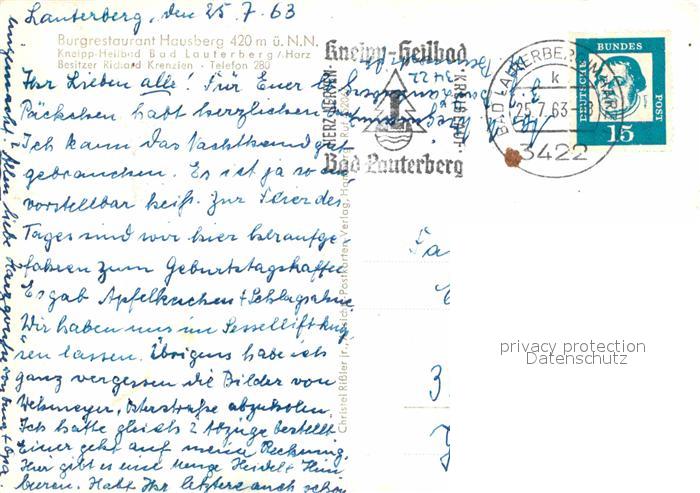 Lauterberg, den 25.7.63
Burgrestaurant Hausberg 420 m ü. N.N.
Kneipp-Heilbad Bad Lauterberg/Harz
Besitzer Richard Krenzien · Telefon 280
Ihr Lieben alle! Für Euer lb.
Päckchen habt herzlichen
Ich kann das Nachthemd gut
gebrauchen. Es ist ja so
vorstellbar heiß. Zur Feier des
Tages sind wir hier heraufge-
fahren zum Geburtstagskaffee
Es gab Apfelkuchen + Schlagsahne
Wir haben uns im Sessellift
sen lassen. Übrigens habe ich
ganz vergessen die Bilder von
Wehmeyer, Osterstraße abzuholen.
Ich hatte gleich 2 Abzüge bestellt
Einer geht auf meine Rechnung.
Hier gibt es eine Menge Heidel + Him
beeren. Habt Ihr letztere auch schon
eingemacht? Allen liebe Harzgrüße von + Opa
Kneipp-Heilbad
HERZ · NERVEN
KREISLAUF
Bad Lauterberg
BAD LAUTERBERG IM HARZ
k
25.7.63
3422
DEUTSCHE BUNDES POST
15
Christel Rißler jr.,
Postkarten-Verlag,
3422
3.
privacy protection
Datenschutz